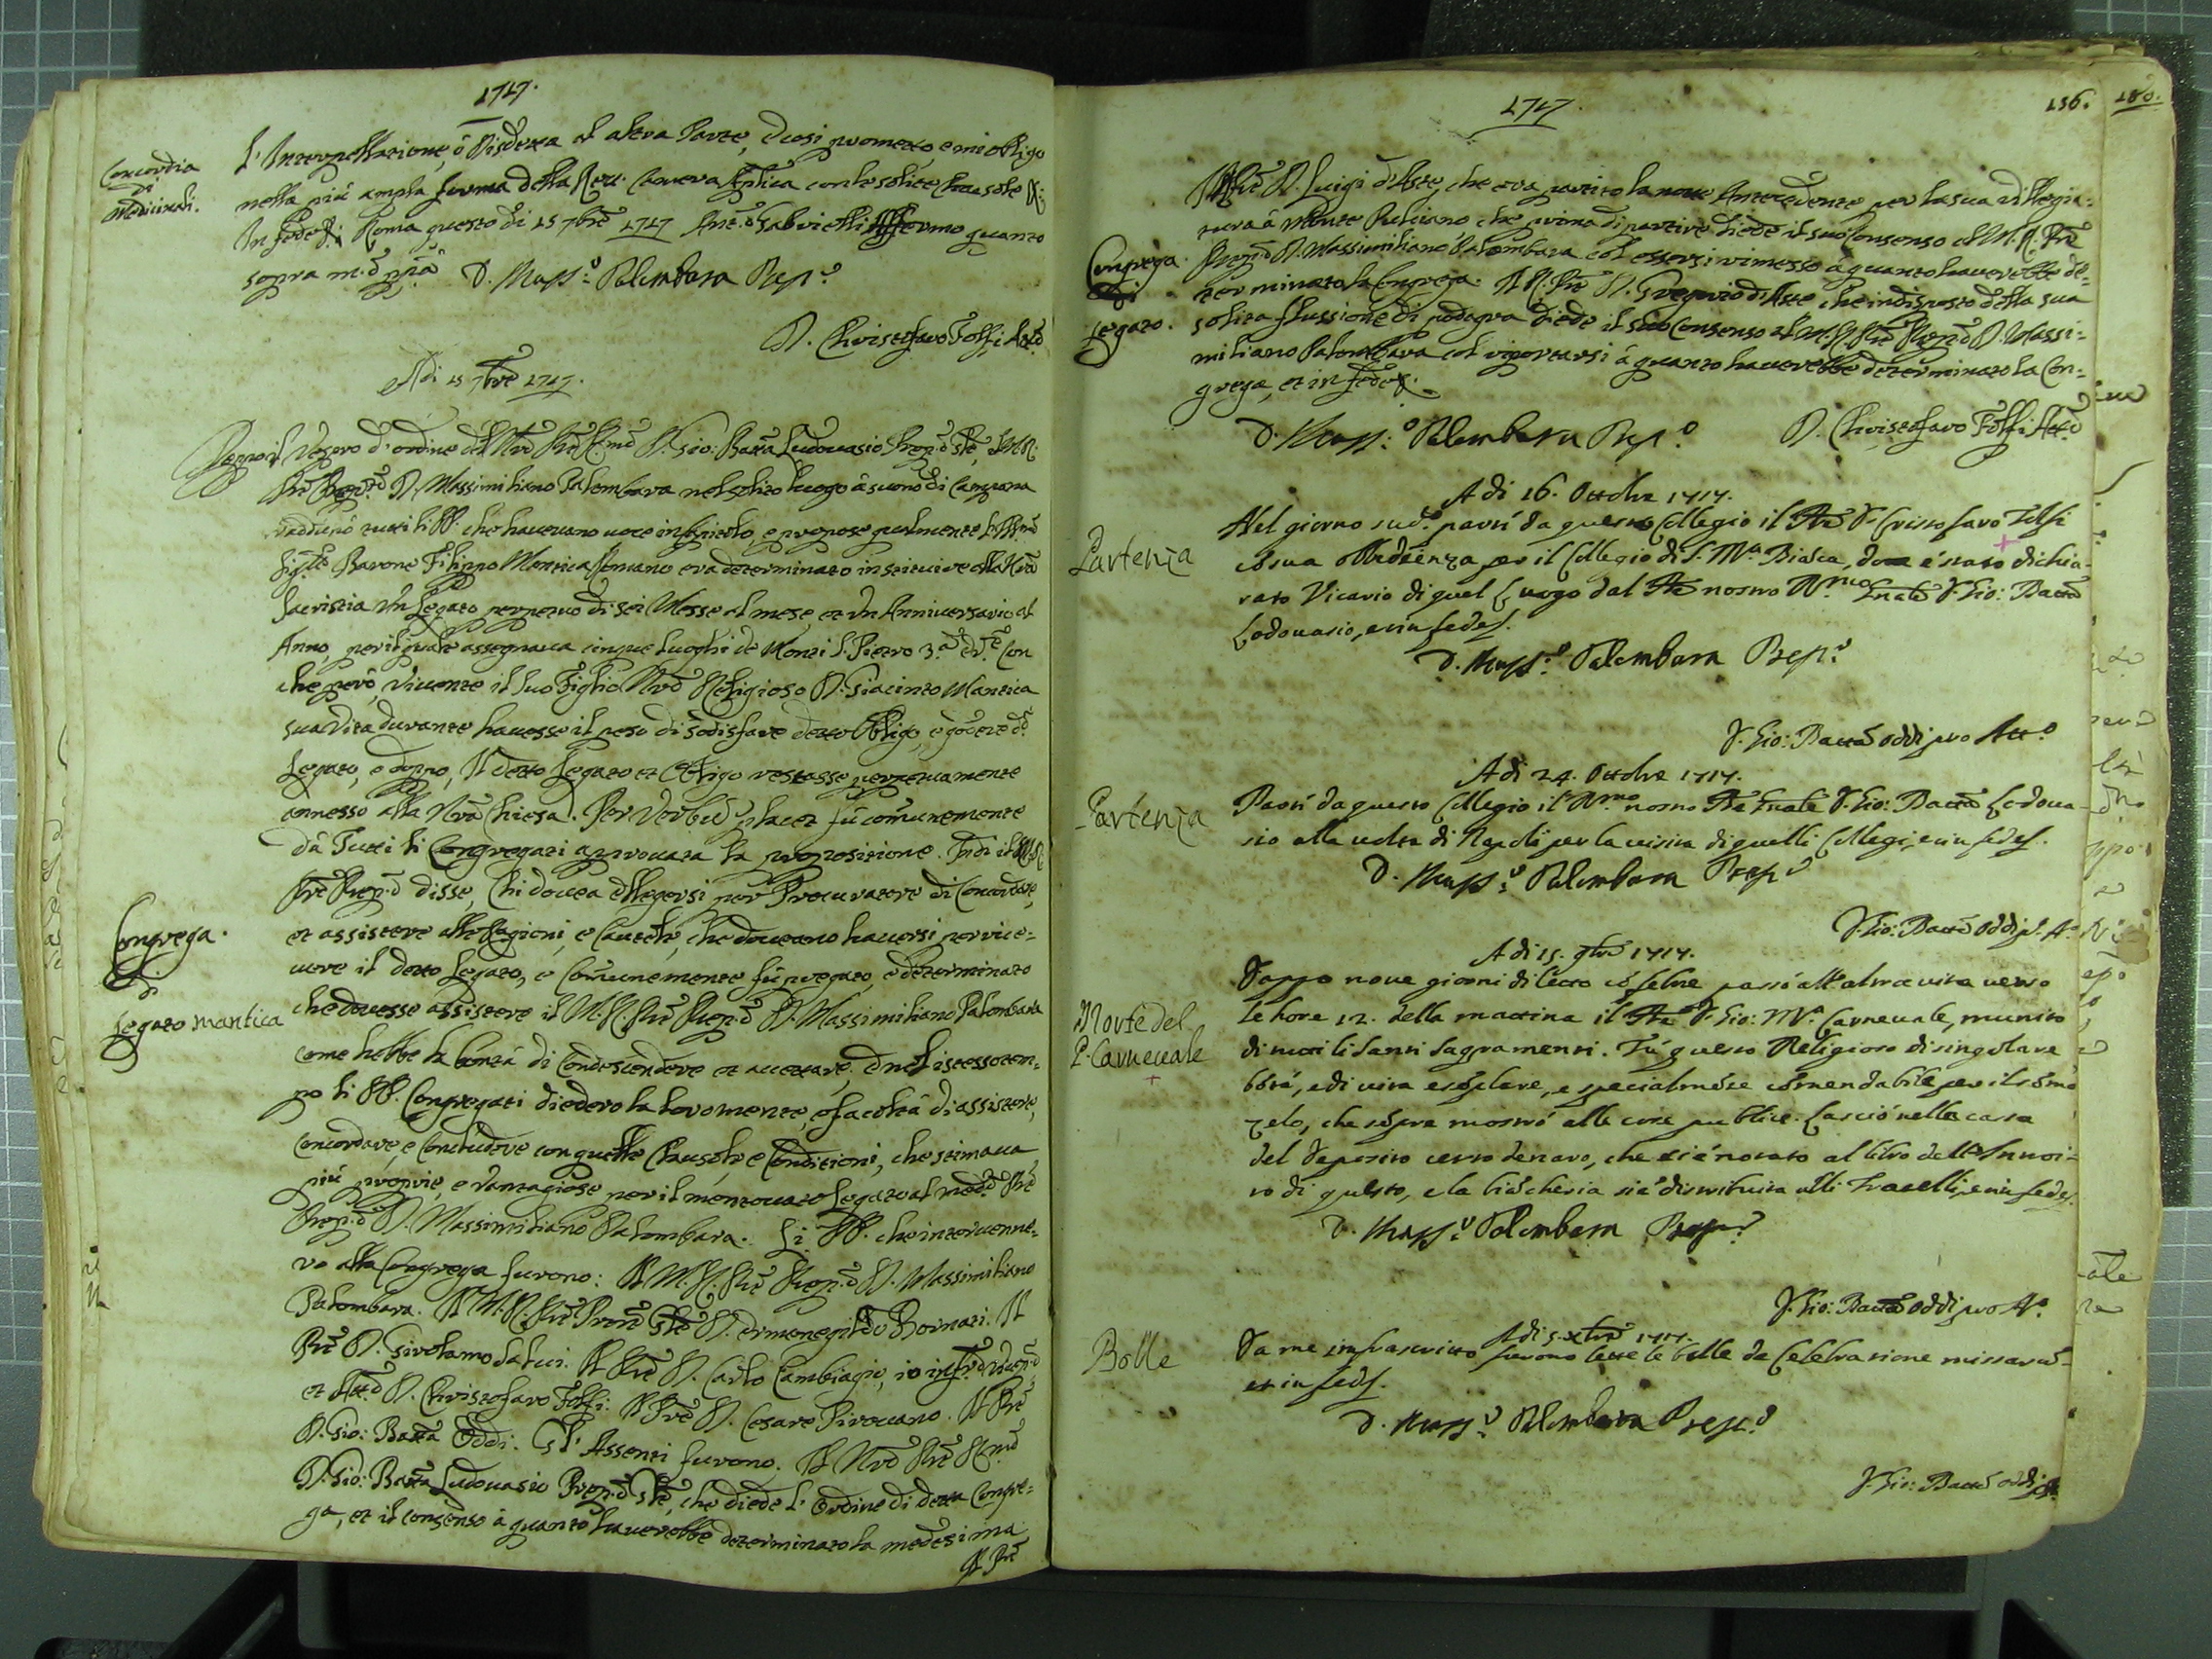 1717.
Concordia
di
Medicinali.
L'Interpellatione, ò Disdetta al altra Parte, e cosi prometto, e mi obligo
nella più ampla forma della Reu: Camera Aplica con le solite clausole &:
In fede &: Roma questo di 15 7bre 1717 Ant.o Gabrielli Affermo quanto
sopra m.o pp.a
D. Mass:o Palombara Prep.o
D. Christofaro Folfi Att.o
Adi 15 7bre 1717.
Doppo il Vespro d'ordine del Nro Pre R.mo D. Gio: Batta Ludouasio Prep.o Gle, il M.R.
Pre Prep.to D. Massimiliano Palombara nel solito luogo à suono di Campana
radunò tutti li PP. che haueuano uoce in Capitolo, e propose qualmente l'Ill.mo
Sig.re Barone Filippo Mantica Romano era determinato instituire alla Nra
Sacristia Un Legato perpetuo di sei Messe al mese, et Un Anniversario al
Anno, per il quale assegnaua cinque Luoghi de Monti S. Pietro 3.o Con
che però, Viuente il Suo Figlio Nro Religioso D. Giacinto Mantica
sua Vita durante hauesse il peso di sodisfare detto Obligo, e godere d.o
Legato, e doppo, Il detto Legato et Obligo restasse perpetuamente
annesso alla Nra Chiesa. Per Verbũ placet fù comunemente
dà Tutti li Congregati approuata la propositione. Indi il M.R.
Pre Prep.o disse, Chi douea ellegersi per Procuratore di Concordare,
et assistere alle Ragioni, e Cautele, che doueano hauersi per rice=
uere il detto Legato, e Comunemente fù pregato, e determinato
che douesse assistere il M.R. Pre Prep.o D. Massimiliano Palombara
Congrega.
di
Legato Mantica
come hebbe la bontà di Condescendere et accettare, e nel istesso tem=
po li PP. Congregati diedero la loro mente, e facoltà di assistere,
Concordare, e Concludere con quelle Clausole, e Conditioni, che stimaua
più proprie, e Vantagiose per il mentouato Legato al med.o Pre
Prep.o D. Massimiliano Palombara. Li PP. che interuenne=
ro alla Congrega furono: Il M.R. Pre Prep.o D. Massimiliano
Palombara. Il M.R. Pre Gle D. Ermenegildo Bornati. Il
Pre D. Girolamo Salui. Il Pre D. Carlo Cambiagio, io infr.o
et Att.o D. Christofaro Folfi. Il Pre D. Cesare Pirouano. Il Pre
D. Gio: Batta Oddi. Gl' Assenti furono. Il Nro Pre R.mo
D. Gio: Batta Ludouasio Prep.o Gle, che diede l'Ordine di detta Congre=
ga, et il consenso à quanto hauerebbe determinato la medesima
Il Pre
1717.
156.
180.
Il Pre D. Luigi d'Aste, che era partito la notte Antecedente per la sua villegia=
tura à Monte Pulciano che prima di partire diede il suo Consenso al M.R. Pre
Congrega.
di
Legato.
Prep.o D. Massimiliano Palombara col essersi rimesso à quanto hauerebbe de=
terminato la Congrega. Il R. Pre D. Gregorio d'Aste che indisposto della sua
solita flussione di podagra diede il suo Consenso al M.R. Pre Prep.o D. Massi=
miliano Palombara col riportarsi à quanto hauerebbe determinato la Con=
grega, et in fede &.
D. Mass:o Palombara Prep.o
D. Christofaro Folfi Att.o
A di 16. Ottobre 1717.
Partenza
Nel giorno sud.o partì da questo Collegio il Pre D. Cristofaro Folfi
cõ sua obbedienza per il Collegio di S. M.a Biãca, doue è stato dichia-
rato Vicario di quel Luogo dal Pre nostro R.mo Gnale D. Gio: Batta
Lodouasio, et in fede &.
D. Mass:o Palombara Prep.o
D. Gio: Batta Oddi pro Att.o
A di 24. Ottobre 1717.
Partenza
Partì da questo Collegio il R.mo nostro Pre Gnale D. Gio: Batta Lodoua-
sio alla uolta di Napoli per la uisita di quelli Collegi, et in fede &.
D. Mass:o Palombara Prep.o
D. Gio: Batta Oddi p. A.o
A di 15. 9bre 1717.
Morte del
P. Carneuale
Doppo noue giorni di letto cõ febre passò all'altra uita uerso
le hore 12. della mattina il Pre D. Gio: M.a Carneuale, munito
di tutti li Santi Sagramenti. Fù questo Religioso di singolare
bõtà, e di uita esẽplare, e specialmẽte cõmendabile per il sõmo
zelo, che sẽpre mostrò alle cose publice. Lasciò nella cassa
del deposito certo denaro, che si è notato al libro dell'Introi-
to di questo, e la biãcheria si è distribuita alli Fratelli, et in fede &.
D. Mass:o Palombara Prep.o
D. Gio: Batta Oddi pro A.o
A di 5. Xbre 1717.
Bolle
Da me infrascritto furono lette le bolle de Celebratione missarũ-
et in fede &.
D. Mass:o Palombara Prep.o
D. Gio: Batta Oddi